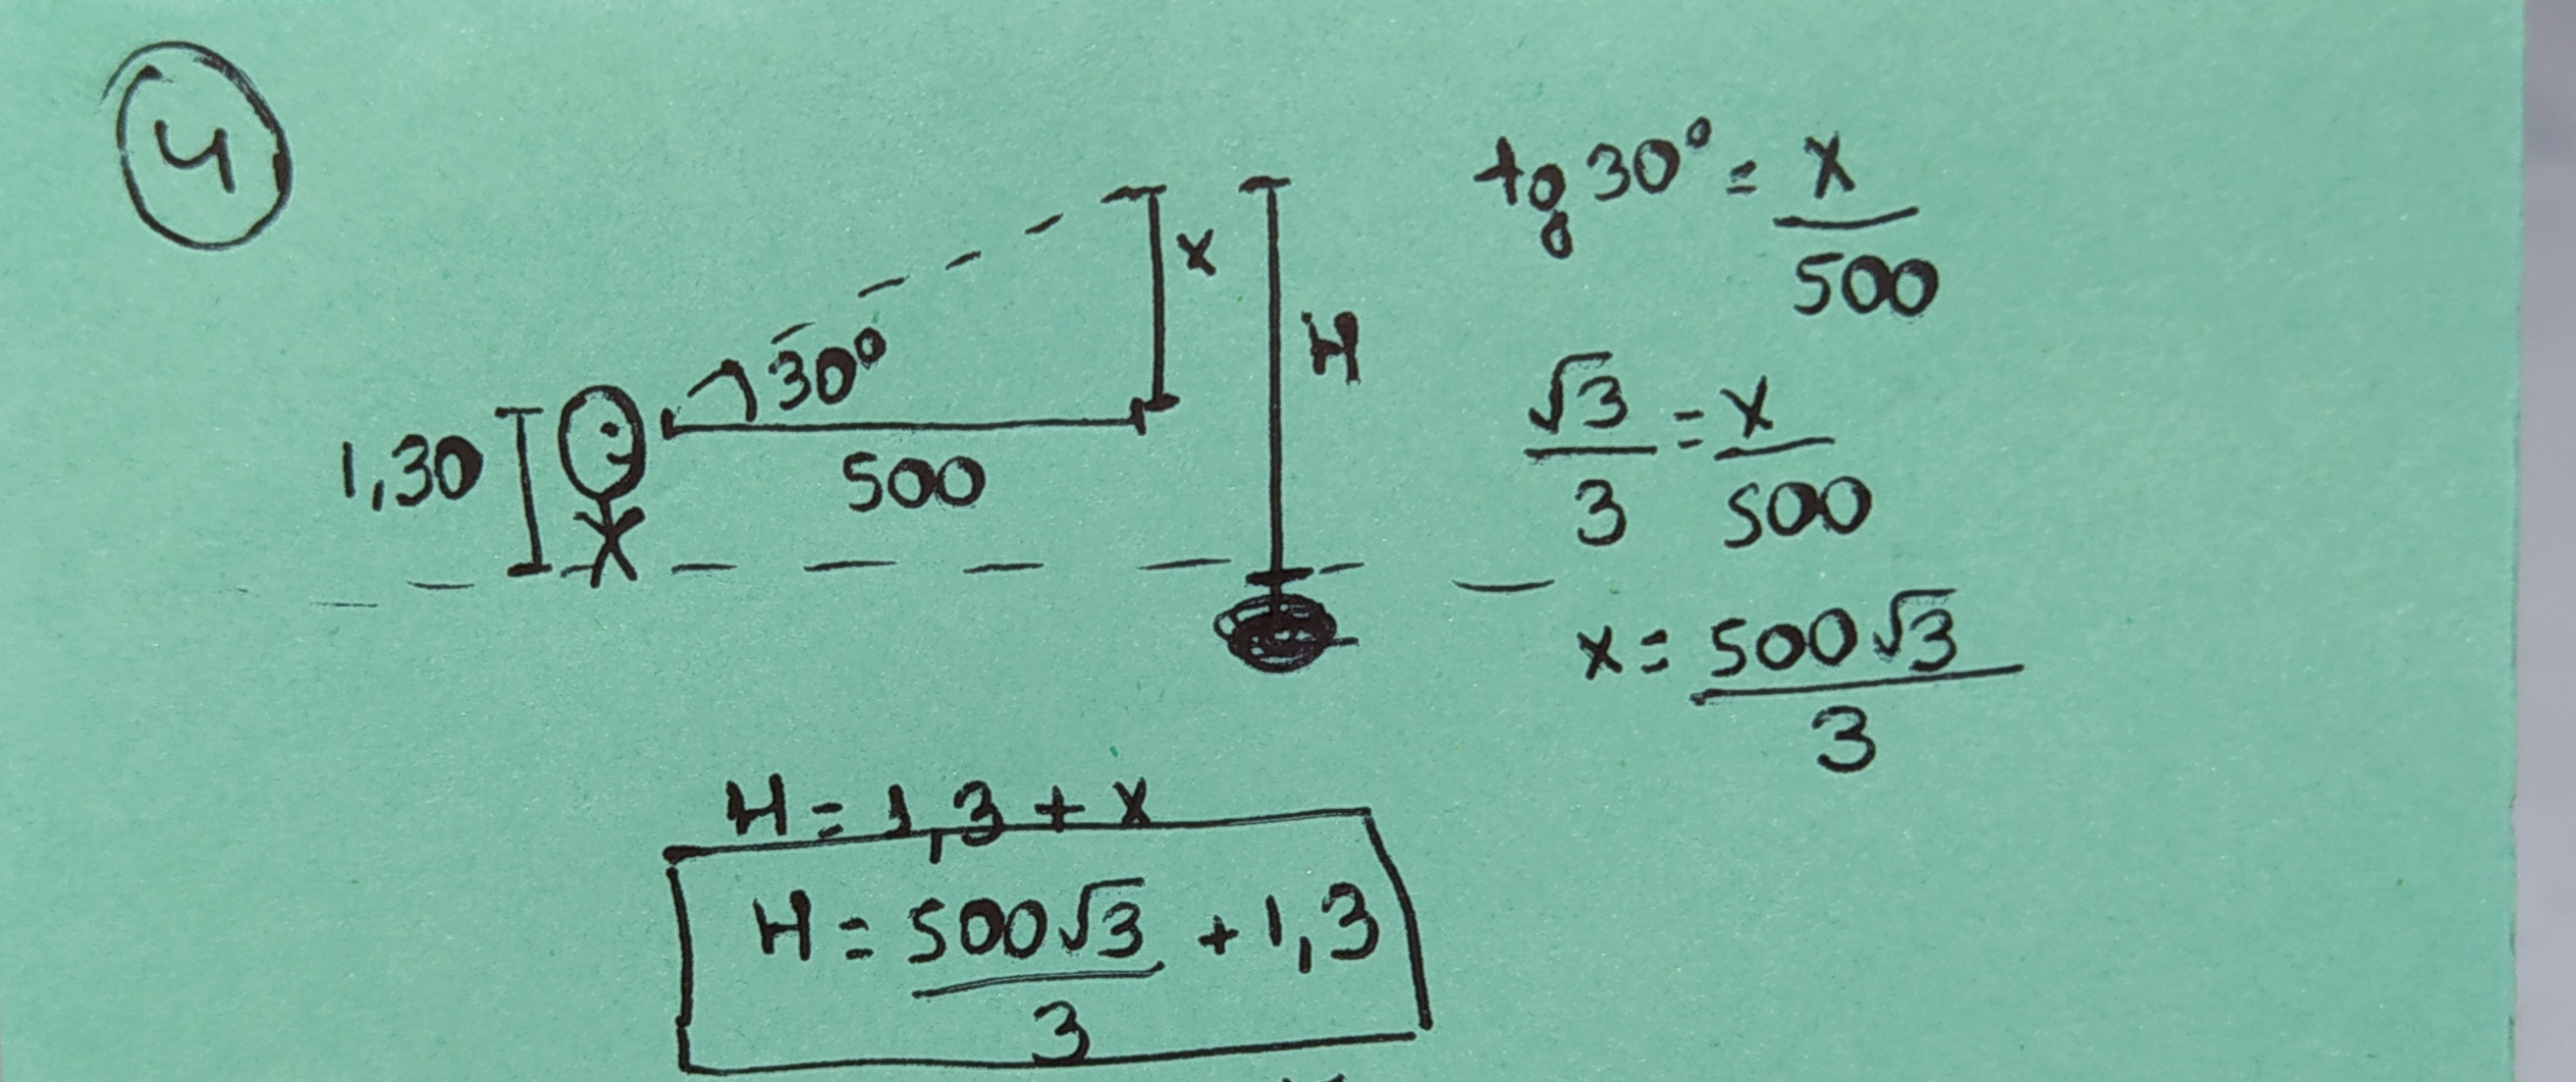 4
x
H
30°
1,30
500
tg 30° = x
500
√3 = x
3 500
x = 500√3
3
H = 1,3 + x
H = 500√3 + 1,3
3